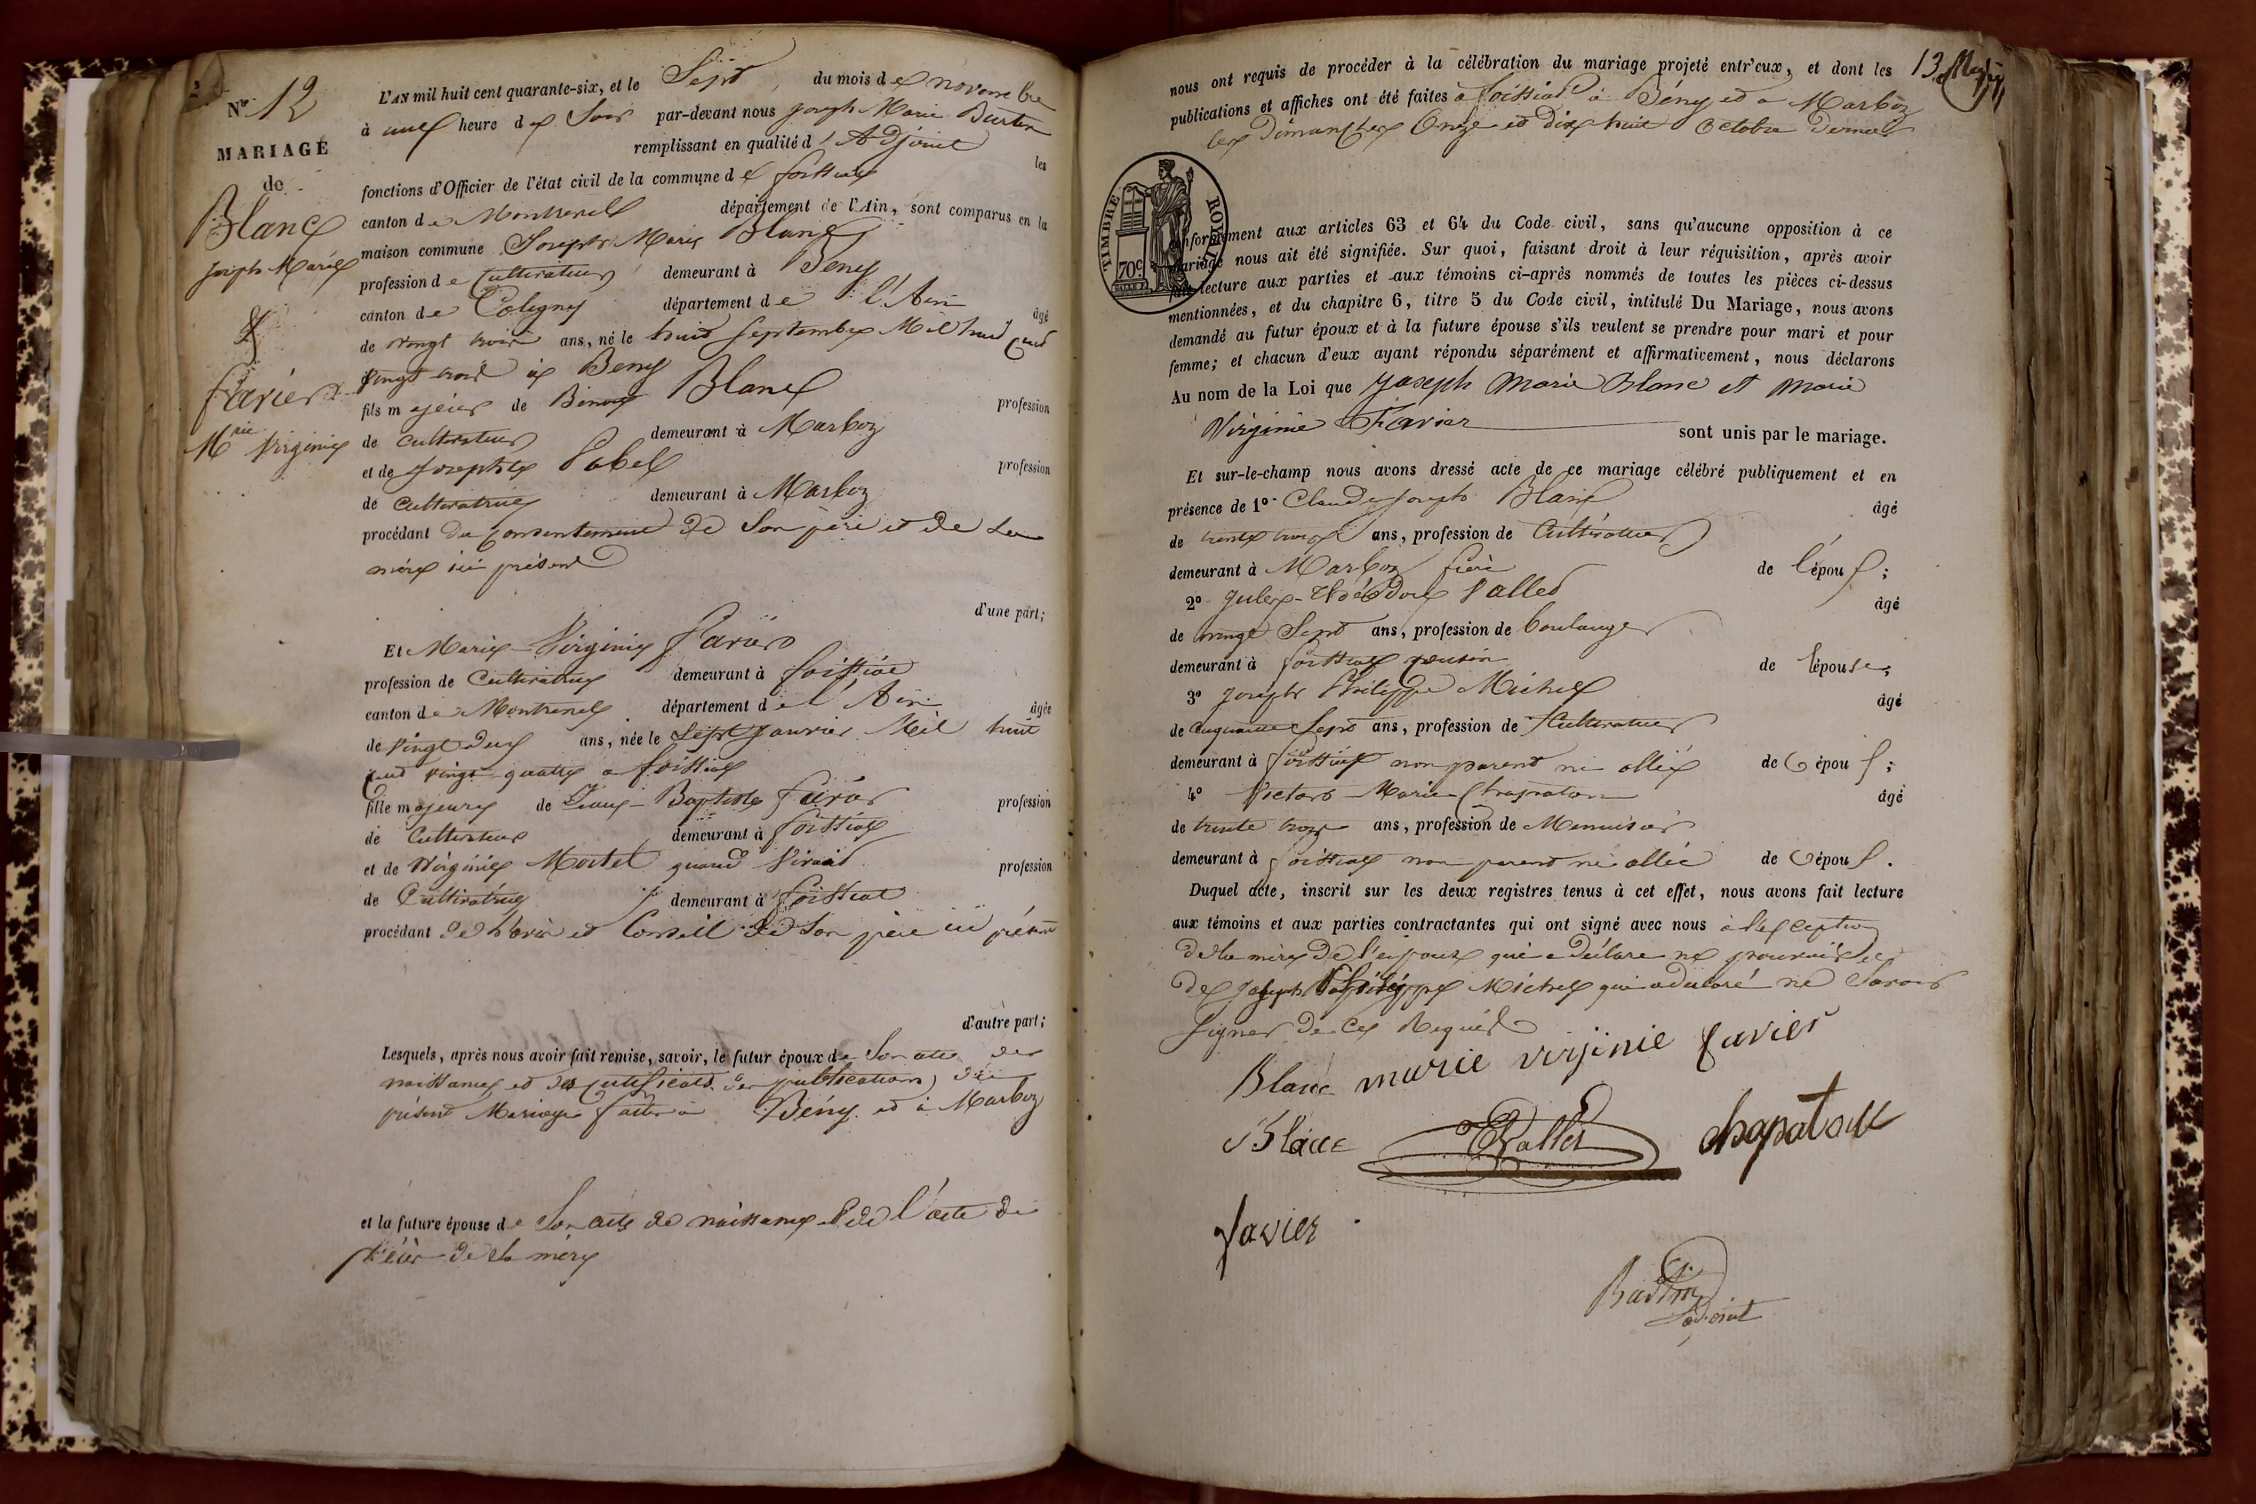 N° 12
MARIAGE
de
Blanc
Joseph Marie
&
Favier
Mrie Virginie
L'AN mil huit cent quarante-six, et le Sept du mois de novembre
à une heure de Soir par-devant nous Joseph Marie
remplissant en qualité d'Adjoint les
fonctions d'Officier de l'état civil de la commune de foissiat
canton de Montrevel département de l'Ain, sont comparus en la
maison commune Joseph Marie Blanc
profession de Cultivateur demeurant à Beny
canton de Coligny département de l'Ain âgé
de vingt trois ans, né le huit Septembre Mil huit Cent
vingt trois à Beny
fils majeur de Benoit Blanc profession
de Cultivateur demeurant à Marboz
et de Josephte profession
de Cultivatrice demeurant à Marboz
procédant du consentement de Son père et de Sa
mère ici présent
d'une part;
Et Marie Virginie favier
profession de Cultivatrice demeurant à foissiat
canton de Montrevel département de l'Ain âgée
de vingt deux ans, née le Sept Janvier Mil huit
Cent vingt quatre a foissiat
fille majeure de Jean Baptiste favier profession
de Cultivateur demeurant à foissiat
et de Virginie Mortel quand vivait profession
de Cultivatrice demeurant à foissiat
procédant de l'avis et Conseil de Son père ici présent
d'autre part;
Lesquels, après nous avoir fait remise, savoir, le futur époux de Son acte de
naissance et des certificats des publications du
présent Mariage faites à Bény et à Marboz
et la future épouse de Son acte de naissance et de l'acte de
décès de Sa mère
13
nous ont requis de procéder à la célébration du mariage projeté entr'eux, et dont les
publications et affiches ont été faites à foissiat à Bény et a Marboz
les Dimanches Onze et dix huit Octobre dernier
TIMBRE ROYAL
70c
conformément aux articles 63 et 64 du Code civil, sans qu'aucune opposition à ce
mariage nous ait été signifiée. Sur quoi, faisant droit à leur réquisition, après avoir
fait lecture aux parties et aux témoins ci-après nommés de toutes les pièces ci-dessus
mentionnées, et du chapitre 6, titre 5 du Code civil, intitulé Du Mariage, nous avons
demandé au futur époux et à la future épouse s'ils veulent se prendre pour mari et pour
femme; et chacun d'eux ayant répondu séparément et affirmativement, nous déclarons
Au nom de la Loi que Joseph Marie Blanc et Marie
Virginie Favier sont unis par le mariage.
Et sur-le-champ nous avons dressé acte de ce mariage célébré publiquement et en
présence de 1° Claude Joseph Blanc âgé
de trente trois ans, profession de Cultivateur
demeurant à Marboz frère de l'époux;
2° Jules Théodore Vallet âgé
de vingt Sept ans, profession de boulanger
demeurant à foissiat cousin de l'épouse;
3° Joseph Philippe Michel âgé
de cinquante Sept ans, profession de Cultivateur
demeurant à foissiat non parent ni allié de l'époux;
4° Victor Marie Chapaton âgé
de trente trois ans, profession de Menuisier
demeurant à foissiat non parent ni allié de l'époux.
Duquel acte, inscrit sur les deux registres tenus à cet effet, nous avons fait lecture
aux témoins et aux parties contractantes qui ont signé avec nous à l'exception
de la mère de l'époux qui a déclaré ne pouvoir et
de Joseph Philippe Michel qui a déclaré ne Savoir
Signer de ce Requis
Blanc marie virjinie favier
Blanc Vallet chapaton
favier
adjoint